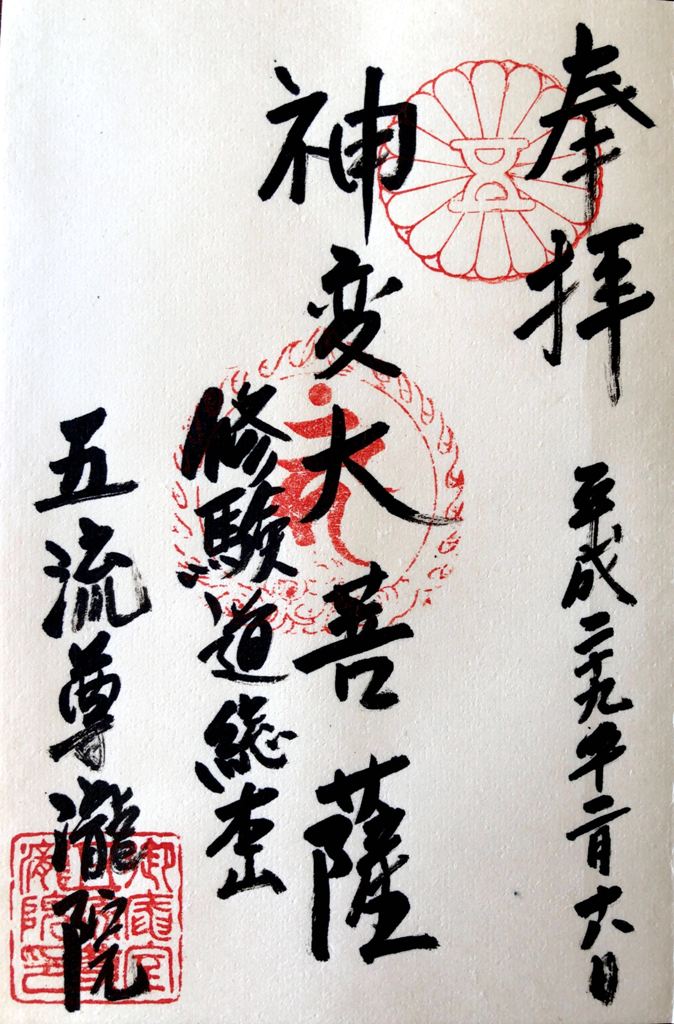 奉拝
平成二十九年二月十六日
神変大菩薩
修験道総本山
五流尊瀧院